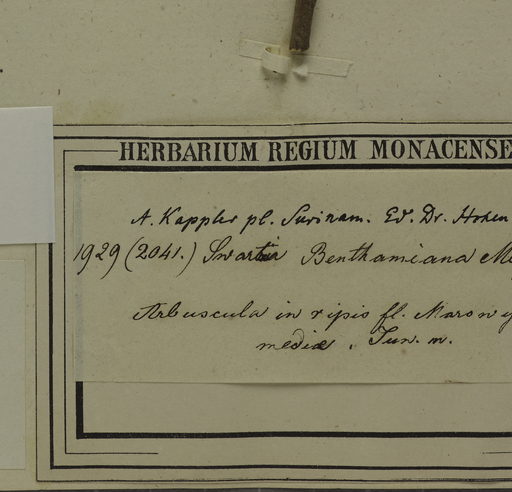 HERBARIUM REGIUM MONACENSE
A. Kappler pl. Surinam. Ed. Dr. Hohen
1929 (2041.) Swartzia Benthamiana Mi
Arbuscula in ripis fl. Marowy
mediæ. Jun. m.